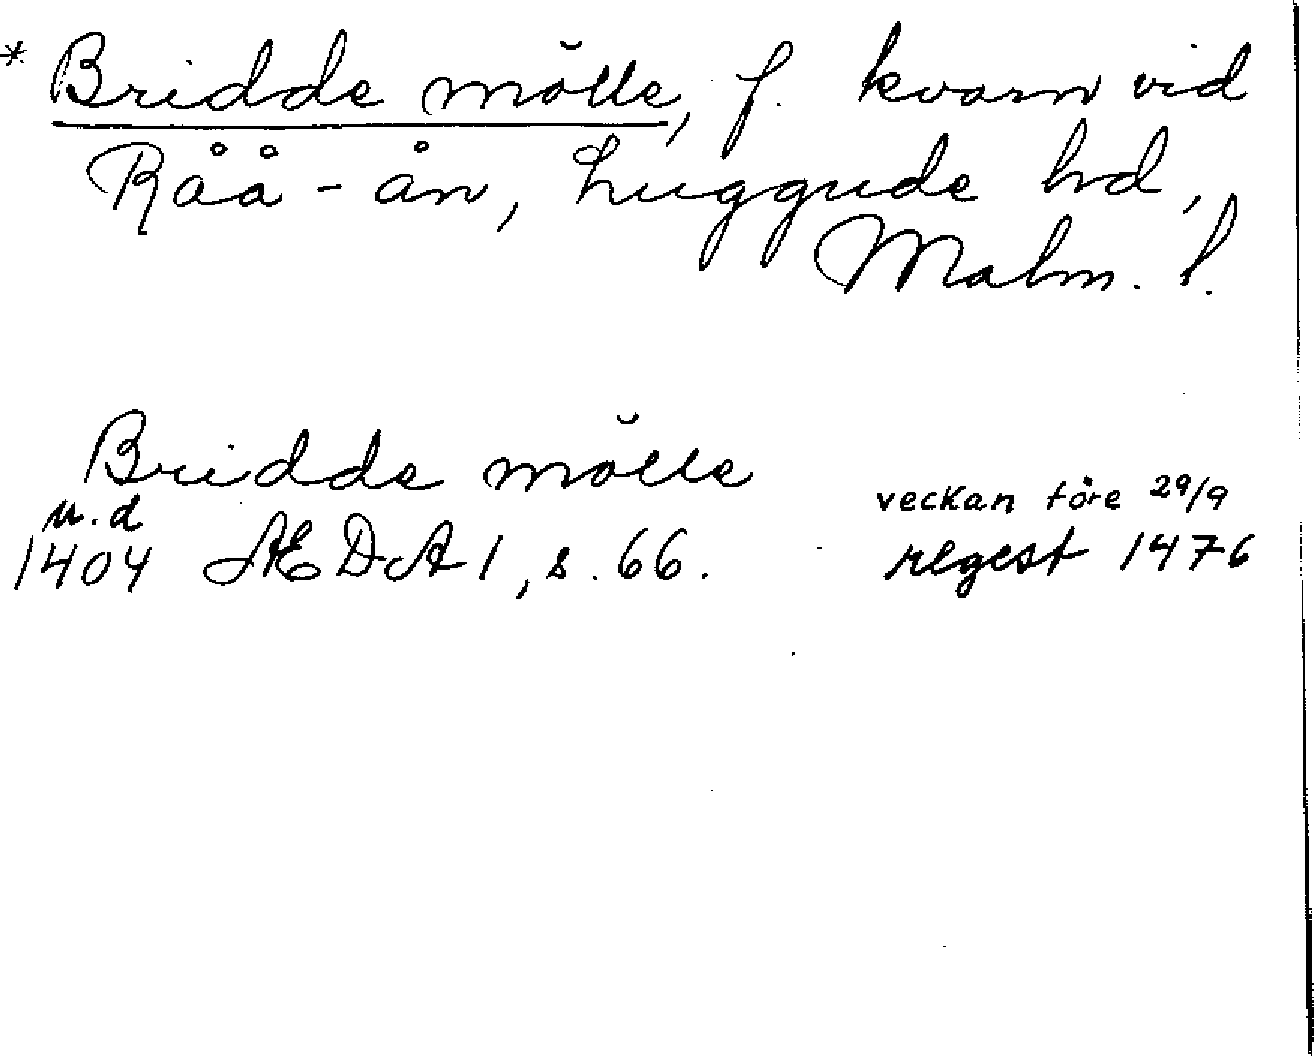 * Bridde mŏlle, f. kvarn vid
Råå-ån, Luggude hd,
Malm. l.
Bridde mŏlle
u.d veckan före 29/9
1404 ÆDA 1, s. 66. regest 1476